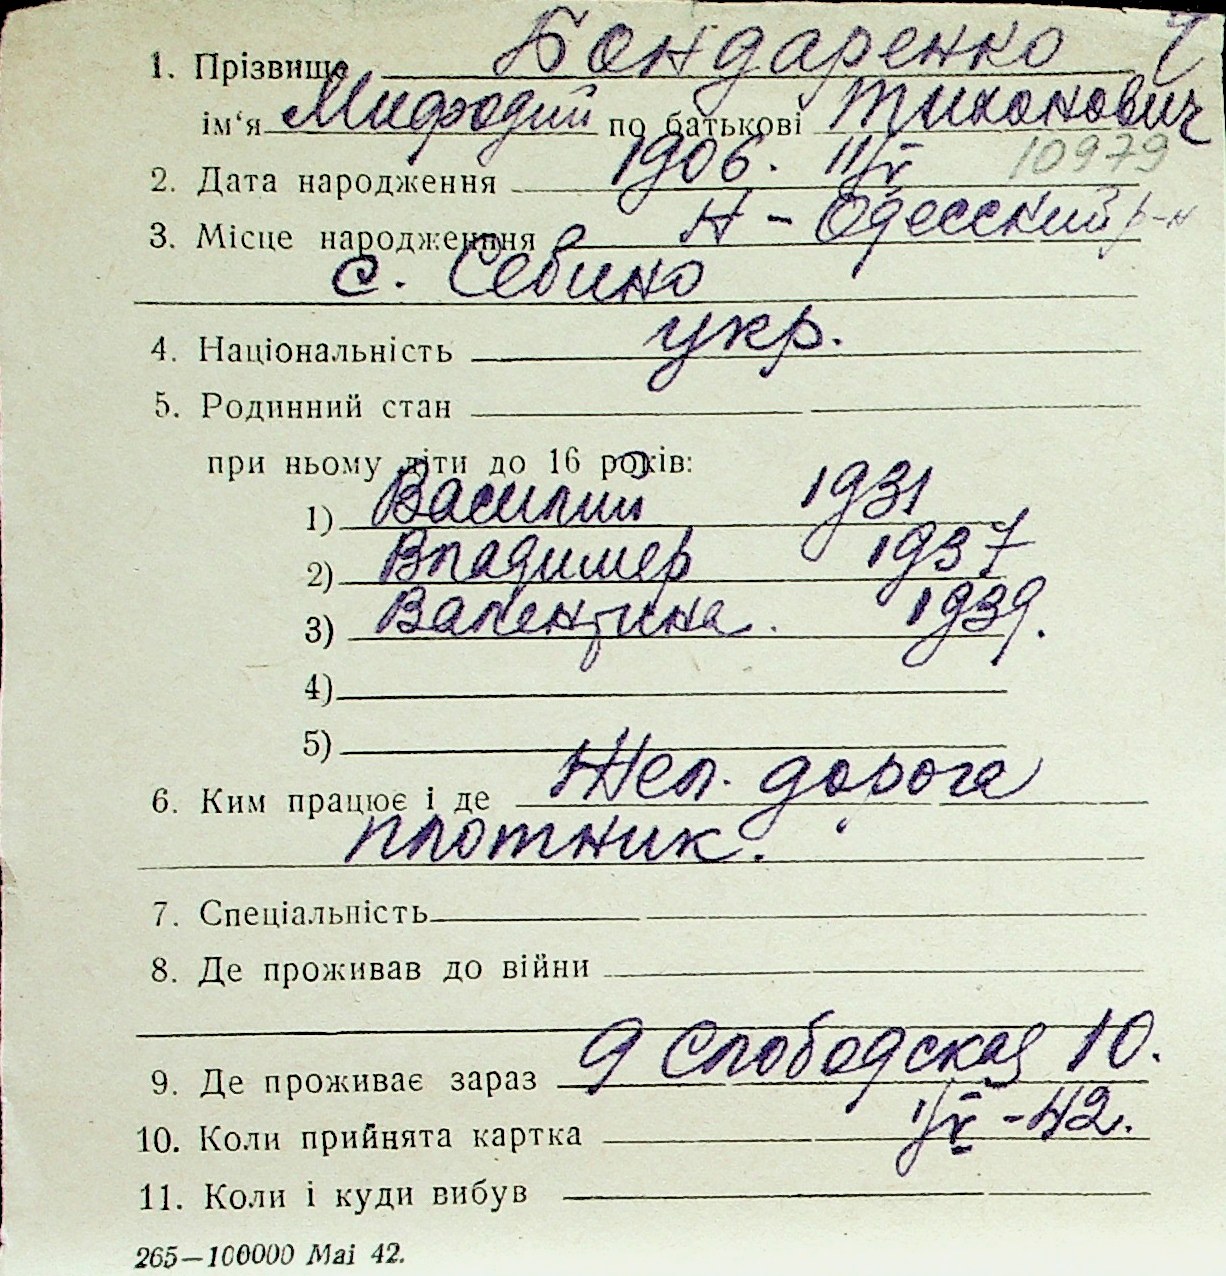 1. Прізвище Бондаренко
ім‘я Мифодий по батькові Тихонович
2. Дата народження 1906. 11/V 10979
3. Місце народження Н - Одесский р-н
с. Себино
4. Національність укр.
5. Родинний стан
при ньому діти до 16 років:
1) Василий 1931
2) Владимер 1937
3) Валентина. 1939.
4)
5)
6. Ким працює і де Жел. дорога
плотник.
7. Спеціальність
8. Де проживав до війни
9. Де проживає зараз 9 Слободская 10.
10. Коли прийнята картка 1/X -42.
11. Коли і куди вибув
265—100000 Mai 42.